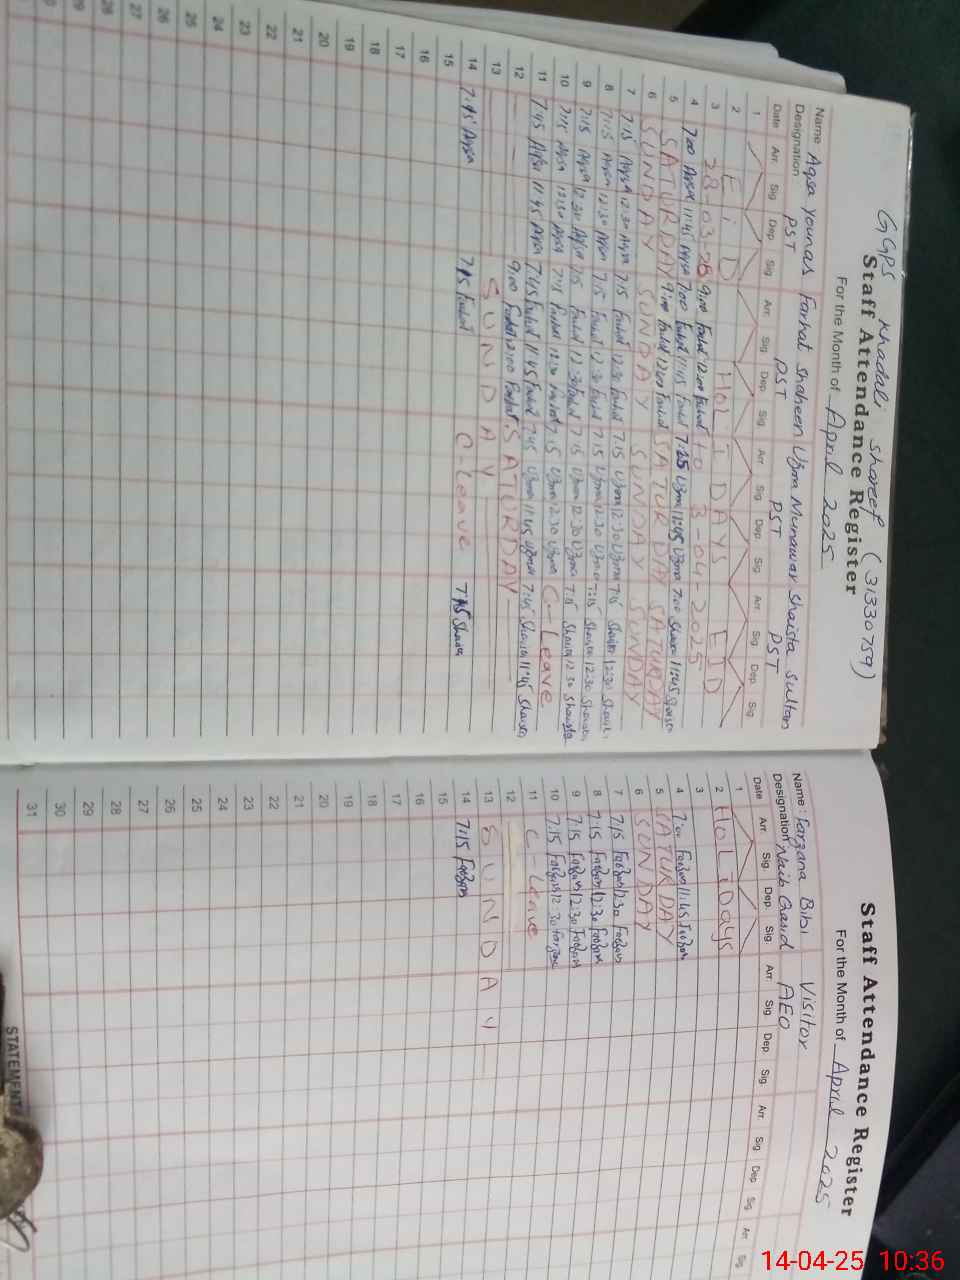 GGPS Khadali Shareef (31330759)
Staff Attendance Register
For the Month of April 2025
Name Aqsa Younas Farhat Shaheen Uzma Munawar Shaista Sultan
Designation PST PST PST PST
Date Arr. Sig Dep Sig Arr. Sig Dep Sig Arr Sig Dep Sig Arr. Sig Dep. Sig
1
2 EID HOLIDAYS EID
3 28-03-25 to 3-04-2025
4 7:00 Aqsa 11:45 Aqsa 7:00 Farhat 11:45 Farhat 7:25 Uzma 11:45 Uzma 7:00 Shaista 11:45 Shaista
5 SATURDAY 9:00 Farhat 12:00 Farhat SATURDAY SATURDAY
6 SUNDAY SUNDAY SUNDAY SUNDAY
7 7:15 Aqsa 12:30 Aqsa 7:15 Farhat 12:30 Farhat 7:15 Uzma 12:30 Uzma 7:15 Shaista 12:30 Shaista
8 7:15 Aqsa 12:30 Aqsa 7:15 Farhat 12:30 Farhat 7:15 Uzma 12:30 Uzma 7:15 Shaista 12:30 Shaista
9 7:15 Aqsa 12:30 Aqsa 7:15 Farhat 12:30 Farhat 7:15 Uzma 12:30 Uzma 7:15 Shaista 12:30 Shaista
10 7:15 Aqsa 12:30 Aqsa 7:15 Farhat 12:30 Farhat 7:15 Uzma 12:30 Uzma C-Leave
11 7:45 Aqsa 11:45 Aqsa 7:45 Farhat 11:45 Farhat 7:45 Uzma 11:45 Uzma 7:45 Shaista 11:45 Shaista
12 9:00 Farhat 12:00 Farhat SATURDAY
13 SUNDAY
14 7:15 Aqsa 7:15 Farhat C-Leave 7:15 Shaista
15
16
17
18
19
20
21
22
23
24
25
26
27
28
29
Staff Attendance Register
For the Month of April 2025
Name: Farzana Bibi Visitor
Designation Naib Qasid AEO
Date Arr. Sig Dep Sig. Arr Sig Dep Sig Arr. Sig Dep Sig Arr Sig
1
2 HOLiDays
3
4 7:00 Farzan 11:45 Farzan
5 SATURDAY
6 SUNDAY
7 7:15 Farzan 12:30 Farzan
8 7:15 Farzan 12:30 Farzan
9 7:15 Farzan 12:30 Farzan
10 7:15 Farzan 12:30 Farzan
11 C-Leave
12
13 SUNDAY
14 7:15 Farzan
15
16
17
18
19
20
21
22
23
24
25
26
27
28
29
30
31
STATEMENT
14-04-25 10:36